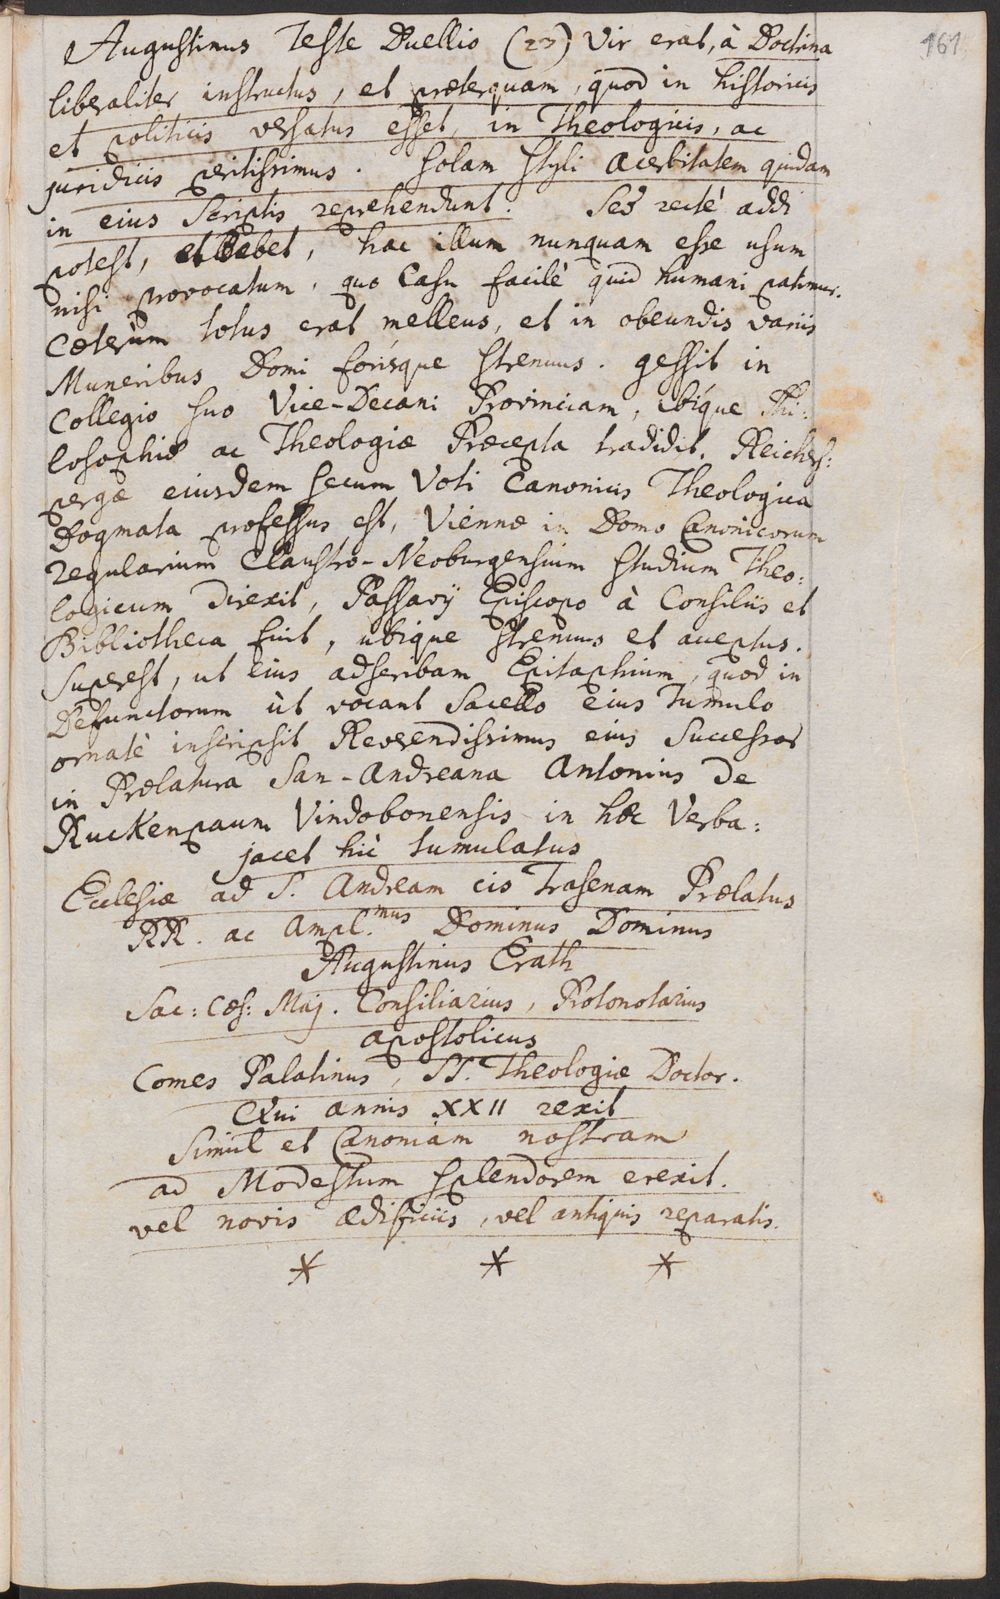 161
Augustinus Teste Duellio (23) Vir erat, à Doctrina
liberaliter instructus, et præterquam, quod in historicis
et politicis versatus esset, in Theologicis, ac
juridicis peritissimus. Solam Styli acerbitatem quidam
in eius Scriptis reprehendunt. Sed rectè addi
potest, et debet, hac illum nunquam esse usum
nisi provocatum, quo Casu facilè quid humani patimur.
Cæterùm totus erat melleus, et in obeundis variis
Muneribus Domi forisque strenuus. gessit in
Collegio suo Vice-Decani Provinciam, ibique Phi:
losophiæ ac Theologiæ Præcepta tradidit. Reichers:
pergæ eiusdem secum Voti Canonicis Theologica
Dogmata professus est, Viennæ in Domo Canonicorum
regularium Claustro-Neoburgensium Studium Theo:
logicum direxit, Passavij Episcopo à Consiliis et
Bibliotheca fuit, ubique strenuus et acceptus.
Superest, ut eius adscribam Epitaphium, quod in
Defunctorum ùt vocant Sacello eius Tumulo
ornatè inscripsit Reverendissimus eius Successor
in Prælatura San-Andreana Antonius De
Ruckenpaum Vindobonensis in hæc Verba:
jacet hìc tumulatus
Ecclesiæ ad S. Andream cis Trasenam Prælatus
RR. ac Ampl.mus Dominus Dominus
Augustinus Erath
Sac: Cæs: Maj. Consiliarius, Protonotarius
apostolicus
Comes Palatinus, SS. Theologiæ Doctor.
Qui annis XXII rexit
Simul et Canoniam nostram
ad Modestum splendorem erexit.
vel novis ædificiis, vel antiquis reparatis.
* * *